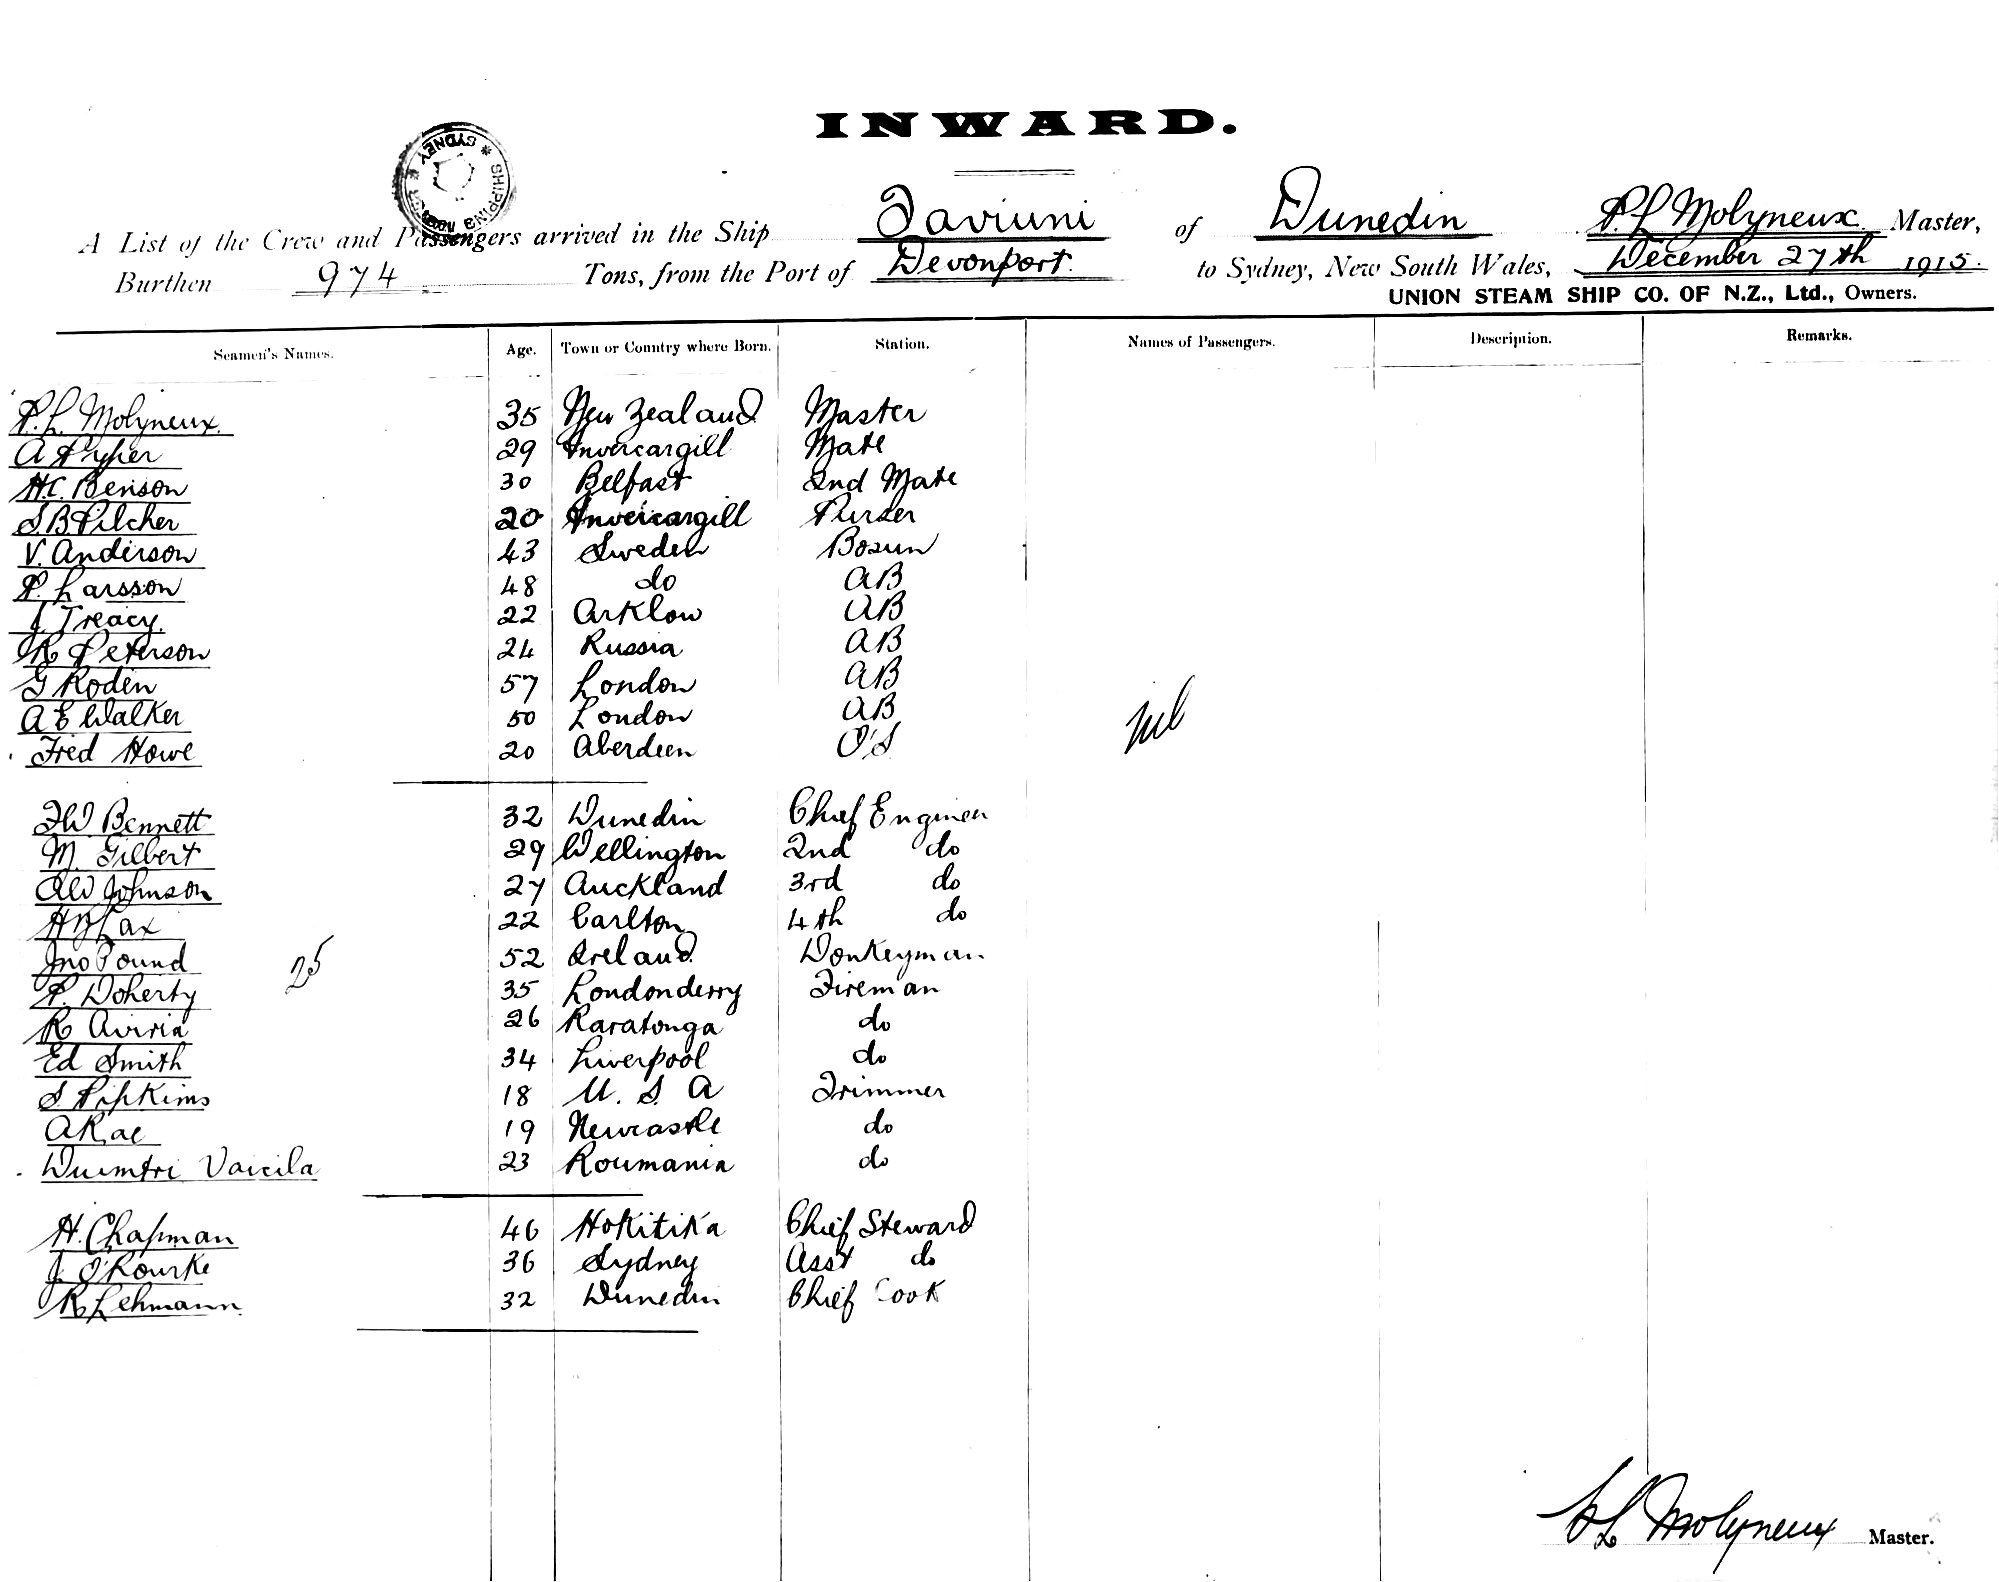 INWARD.
SHIPPING SYDNEY
A List of the Crew and Passengers arrived in the Ship Taviuni of Dunedin P.L Molyneux Master,
Burthen 974 Tons, from the Port of Devonport. to Sydney, New South Wales, December 27th 1915.
UNION STEAM SHIP CO. OF N.Z., Ltd., Owners.
Seamen's Names. Age. Town or Country where Born. Station. Names of Passengers. Description. Remarks.
P.L. Molyneux. 35 New Zealand Master
A Pyper 29 Invercargill Mate
H.C. Benson 30 Belfast 2nd Mate
S.B Pilcher 20 Invercargill Purser
V. Anderson 43 Sweden Bosun
P. Larsson 48 do AB
J Treacy. 22 Arklow AB
R Peterson 24 Russia AB
G Roden 57 London AB
A E Walker 50 London AB
Nil
Fred Howe 20 Aberdeen O'S
FW Bennett 32 Dunedin Chief Engineer
M. Gilbert 29 Wellington 2nd do
AW Johnson 27 Auckland 3rd do
H Lax 22 Carlton 4th do
Jno Pound 52 Ireland. Donkeyman
25
P. Doherty 35 Londonderry Fireman
R Aviria 26 Raratonga do
Ed Smith 34 Liverpool do
S. Pipkins 18 U. S. A Trimmer
A Rae 19 Newcastle do
Duimtri Vaicila 23 Roumania do
H. Chapman 46 Hokitika Chief Steward
J. O'Rourke 36 Sydney Asst do
R Lehmann 32 Dunedin Chief Cook
P L Molyneux Master.